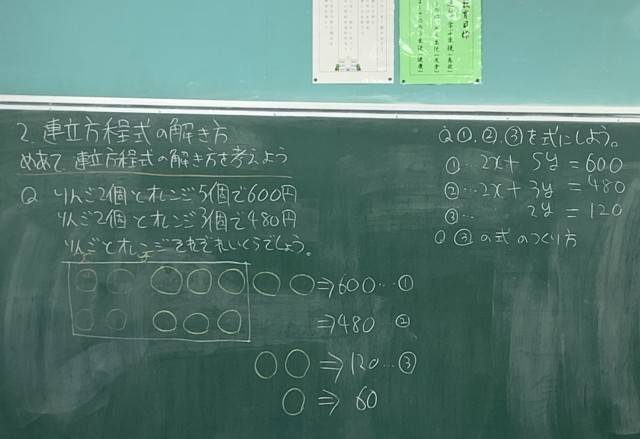 2. 連立方程式の解き方
めあて 連立方程式の解き方を考えよう
Q りんご2個とオレンジ5個で600円
りんご2個とオレンジ3個で480円
りんごとオレンジそれぞれいくらでしょう。
⇒600…①
⇒480 ②
⇒120…③
⇒ 60
Q ①,②,③を式にしよう。
①… 2x + 5y = 600
②… 2x + 3y = 480
③… 2y = 120
Q ③の式のつくり方
教育目標